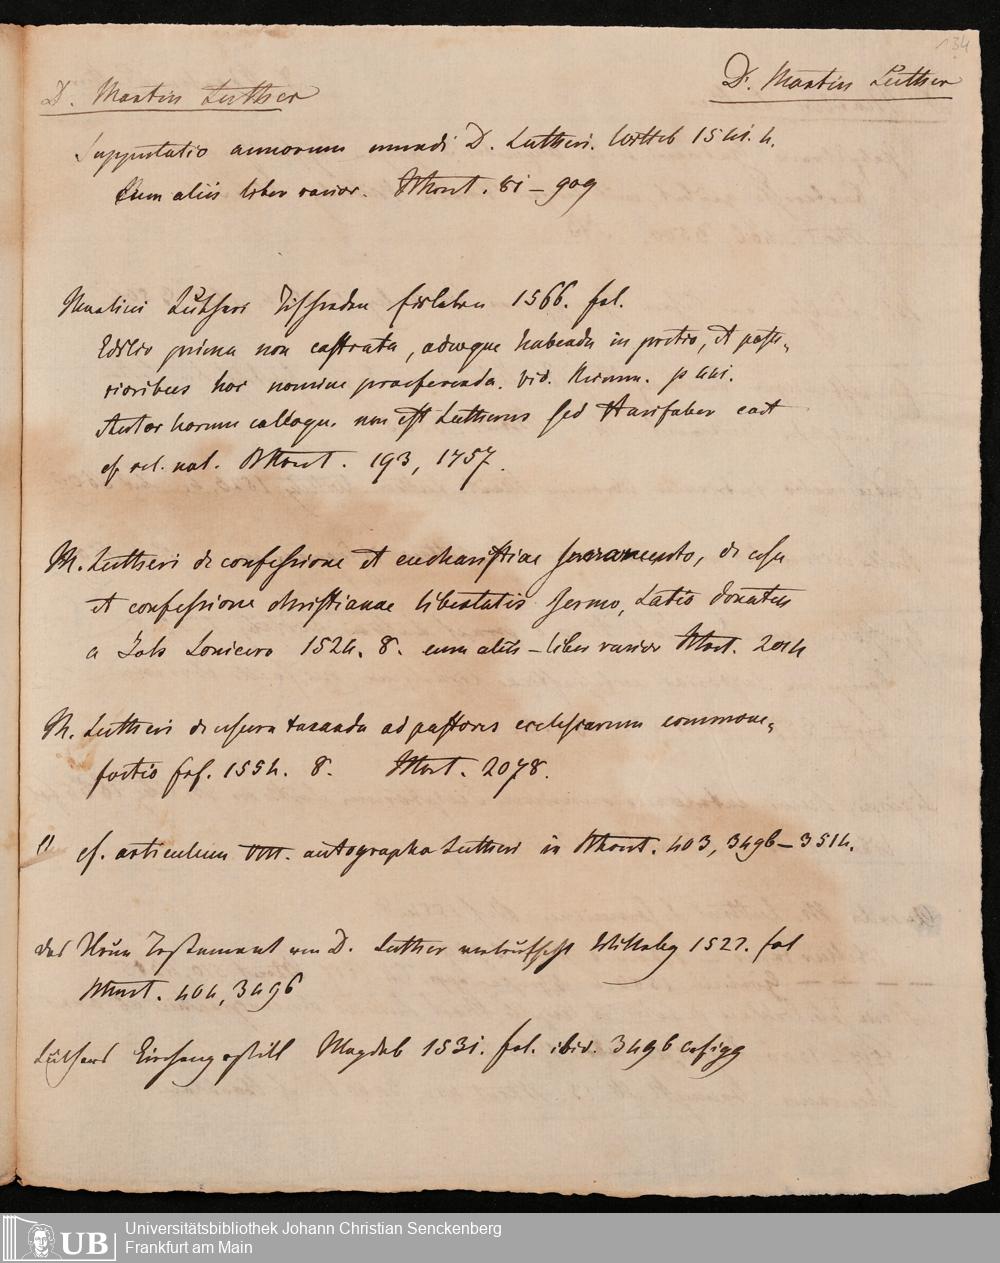 134
D. Martin Luther
D. Martin Luther
Supputatio annorum mundi D. Lutheri. Witteb 1541. 4.
Cum aliis liber rarior. 81 – 909
Martini Luthers Tischreden Eisleben 1566. fol.
Editio prima non castrata, adeoque habenda in pretio, et poste-
rioribus hoc nomine praeferenda. vid. p 441.
Autor horum colloqu. non est Lutherus sed Aurifaber
cf rel. 193, 1757.
M. Lutheri de confessione et eucharistiae sacramento, de usu
et confessione christianae libertatis sermo, Latio donatus
a Joh Lonicero 1524. 8. cum aliis – liber rarior
M. Lutheri de usura taxanda ad pastores ecclesiarum commone-
factio 1554. 8. 2078.
cf. articulum autographa Lutheri in 403, 3496 – 3514.
das Neue Testament von D. Luther verteutscht Wittebg fol
404, 3496
Luthers Kirchenpostill Magdeb 1531. fol. ibid. 3496
UB Universitätsbibliothek Johann Christian Senckenberg
Frankfurt am Main